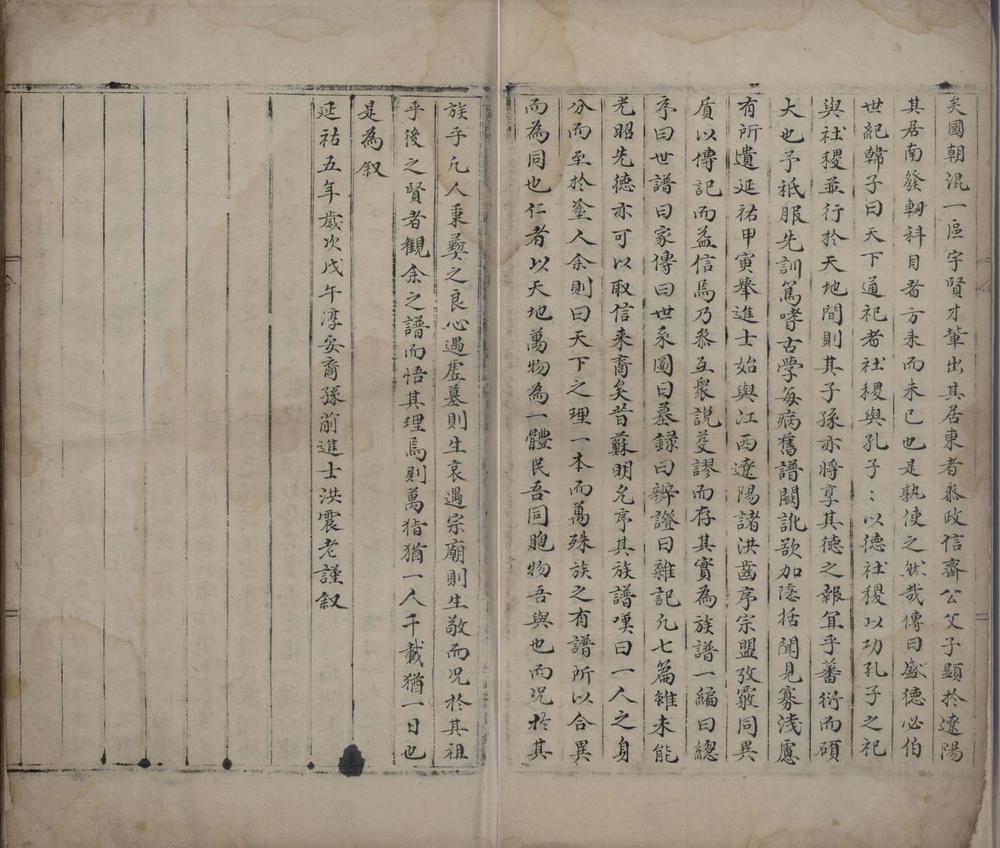 矣國朝混一區宇賢才輩出其居東者叅政信齋公父子顯於遼陽
其居南發軔科目者方未而未已也是孰使之然哉傳曰盛德必伯
世紀韓子曰天下通祀者社稷與孔子:以德社稷以功孔子之祀
與社稷並行於天地間則其子孫亦將享其德之報宜乎蕃衍而碩
大也予祇服先訓篤嗜古學每病舊譜闕訛欲加隱括聞見寡淺慮
有所遺延祐甲寅舉進士始與江西遼陽諸洪齒序宗盟攷覈同異
質以傳記而益信焉乃叅互衆說芟謬而存其實為族譜一編曰總
序曰世譜曰家傳曰世系圖曰墓錄曰辨證曰雜記凢七篇雖未能
光昭先德亦可以取信来裔矣昔蘇明允序其族譜嘆曰一人之身
分而至於塗人余則曰天下之理一本而萬殊族之有譜所以合異
而為同也仁者以天地萬物為一體民吾同胞物吾與也而况於其
族乎凢人秉彞之良心遇虗墓則生哀遇宗廟則生敬而况於其祖
乎後之賢者觀余之譜而悟其理焉則萬指猶一人千載猶一日也
是為叙
延祐五年歲次戊午淳安裔孫前進士洪震老謹叙